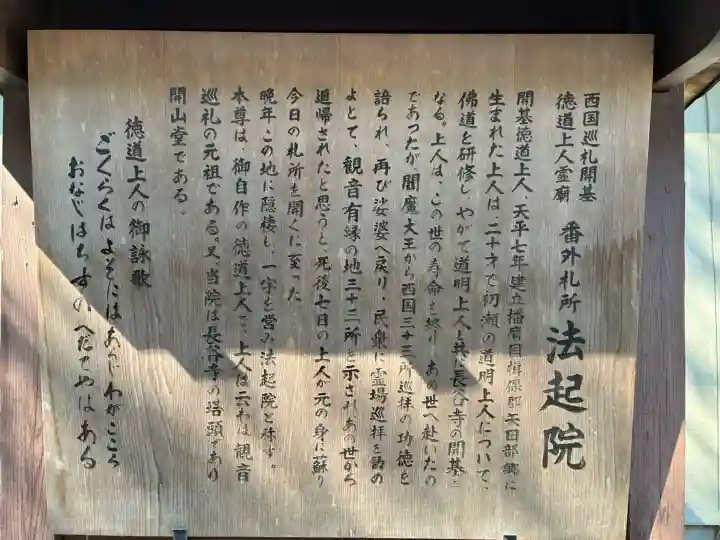 西国巡礼開基
徳道上人霊廟　番外札所　法起院
開基徳道上人、天平七年建立播磨国揖保郡矢田部郷に
生まれた上人は、二十才で初瀬の道明上人について、
佛道を研修し、やがて道明上人と共に長谷寺の開基と
なる。上人は、この世の寿命を終り、あの世へ赴いたの
であつたが閻魔大王から西国三十三所巡拝の功徳を
語られ、再び娑婆へ戻り、民衆に霊場巡拝を訪の
よとて、観音有縁の地三十三所を示されあの世から
追帰されたと思うと、死後七日の上人が元の身に蘇り
今日の札所を開くに至った。
晩年この地に隠棲し、一宇を営み法起院と称す。
本尊は、御自作の徳道上人で、上人は云わば観音
巡礼の元祖である。又、当院は長谷寺の塔頭であり
開山堂である。
徳道上人の御詠歌
ごくらくはよそにはあらじわがこころ
おなじはちすのへだてやはある